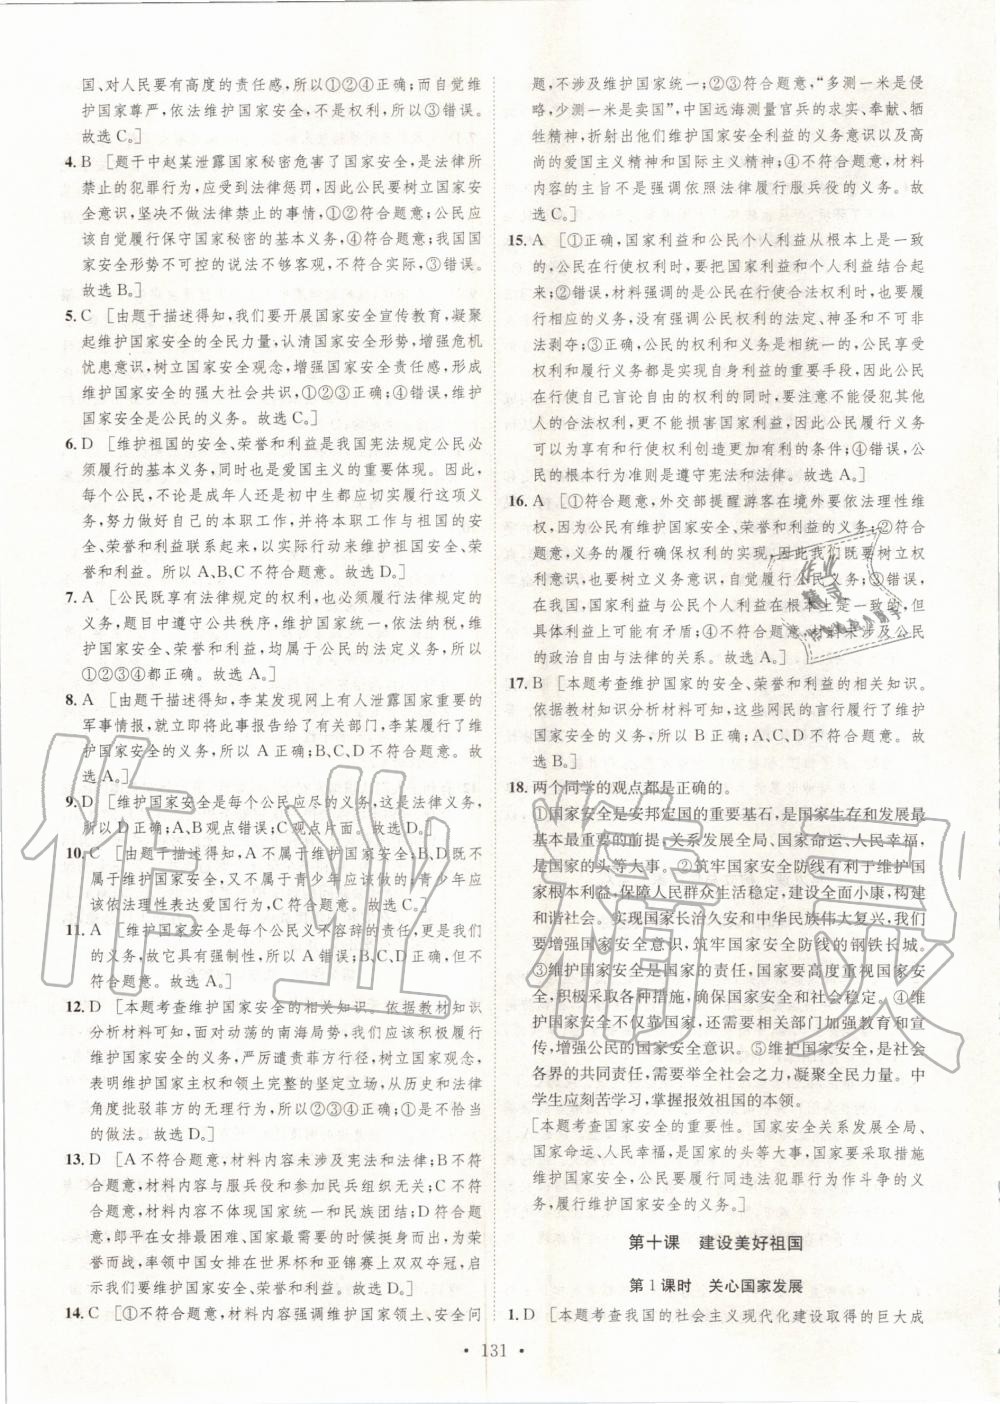 国、对人民要有高度的责任感,所以①②④正确;而自觉维
护国家尊严,依法维护国家安全,不是权利,所以③错误。
故选C。]
4. B [题干中赵某泄露国家秘密危害了国家安全,是法律所
禁止的犯罪行为,应受到法律惩罚,因此公民要树立国家安
全意识,坚决不做法律禁止的事情,①②符合题意;公民应
该自觉履行保守国家秘密的基本义务,④符合题意;我国国
家安全形势不可控的说法不够客观,不符合实际,③错误。
故选B。]
5. C [由题干描述得知,我们要开展国家安全宣传教育,凝聚
起维护国家安全的全民力量,认清国家安全形势,增强危机
忧患意识,树立国家安全观念,增强国家安全责任感,形成
维护国家安全的强大社会共识,①②③正确;④错误,维护
国家安全是公民的义务。故选C。]
6. D [维护祖国的安全、荣誉和利益是我国宪法规定公民必
须履行的基本义务,同时也是爱国主义的重要体现。因此,
每个公民,不论是成年人还是初中生都应切实履行这项义
务,努力做好自己的本职工作,并将本职工作与祖国的安
全、荣誉和利益联系起来,以实际行动来维护祖国安全、荣
誉和利益。所以A、B、C不符合题意。故选D。]
7. A [公民既享有法律规定的权利,也必须履行法律规定的
义务,题目中遵守公共秩序,维护国家统一,依法纳税,维护
国家安全、荣誉和利益,均属于公民的法定义务。所以
①②③④都正确。故选A。]
8. A [由题干描述得知,李某发现网上有人泄露国家重要的
军事情报,就立即将此事报告给了有关部门,李某履行了维
护国家安全的义务,所以A正确;B、C、D不符合题意。故
选A。]
9. D [维护国家安全是每个公民应尽的义务,这是法律义务,
所以D正确;A、B观点错误;C观点片面。故选D。]
10. C [由题干描述得知,A不属于维护国家安全;B、D既不
属于维护国家安全,又不属于青少年应该做的;青少年应
该依法理性表达爱国行为,C符合题意。故选C。]
11. A [维护国家安全是每个公民义不容辞的责任,更是我们
的义务,故它具有强制性,所以A错误;B、C、D正确,但不
符合题意。故选A。]
12. D [本题考查维护国家安全的相关知识。依据教材知识
分析材料可知,面对动荡的南海局势,我们应该积极履行
维护国家安全的义务,严厉谴责菲方行径,树立国家观念,
表明维护国家主权和领土完整的坚定立场,从历史和法律
角度批驳菲方的无理行为,所以②③④正确;①是不恰当
的做法。故选D。]
13. D [A不符合题意,材料内容未涉及宪法和法律;B不符
合题意,材料内容与服兵役和参加民兵组织无关;C不符
合题意,材料内容没有体现国家统一和民族团结;D符合
题意,郎平在女排最困难、国家最需要的时候挺身而出,勇
挑重担,率领中国女排在世界杯和亚锦赛上双双夺冠,启
示我们公民要履行维护国家安全、荣誉和利益的义务。]
14. C [①不符合题意,材料内容强调维护国家领土、安全问
题,不涉及维护国家统一;②③符合题意,“多测一米是侵
略,少测一米是卖国”,中国远海测量官兵的求实、奉献、牺
牲精神,折射出他们维护国家安全利益的义务意识以及高
尚的爱国主义精神和国际主义精神;④不符合题意,材料
内容的主旨不是强调依照法律履行服兵役的义务。故
选C。]
15. A [①正确,国家利益和公民个人利益从根本上是一致
的,公民在行使权利时,要把国家利益和个人利益结合起
来;②错误,材料强调的是公民在行使合法权利时,也要履
行相应的义务,没有强调公民权利的法定、神圣和不可非
法剥夺;③正确,公民的权利和义务是相统一的,公民享受
权利和履行义务都是实现自身利益的重要手段,因此公民
在行使自己言论自由的权利的同时,要注意不能侵犯其他
人的合法权利,更不能损害国家的利益,公民履行义务可
以为享有和行使权利创造更加有利的条件;④错误,公
民的根本行为准则是遵守宪法和法律。故选A。]
16. A [①符合题意,外交部提醒游客在境外要依法理性维
权,因为公民有维护国家安全、荣誉和利益的义务;②符合
题意,义务的履行确保权利的实现,因此我们既要树立权
利意识,还要树立义务意识,自觉履行公民义务;③错误,
在我国,国家利益与公民个人利益在根本上是一致的,但
具体利益上可能有矛盾;④不符合题意,材料未涉及公民
的政治自由与法律的关系。故选A。]
17. B [本题考查维护国家的安全、荣誉和利益的相关知识。
依据教材知识分析材料可知,这些网民的言行履行了维护
国家安全的义务,所以B正确;A、C、D不符合题意。故
选B。]
18. 两个同学的观点都是正确的。
①国家安全是安邦定国的重要基石,是国家生存和发展最
基本最重要的前提,关系发展全局、国家命运、人民幸福,
是国家的头等大事。②筑牢国家安全防线有利于维护国
家根本利益,保障人民群众生活稳定,建设全面小康,构建
和谐社会。实现国家长治久安和中华民族伟大复兴,我们
要增强国家安全意识,筑牢国家安全防线的钢铁长城。
③维护国家安全是国家的责任,国家要高度重视国家安
全,积极采取各种措施,维护国家安全和社会稳定。④维
护国家安全不仅靠国家,同时相关部门加强教育和宣
传,增强公民的国家安全意识。⑤维护国家安全,是社会
各界的共同责任,需要举全社会之力,凝聚全民力量。中
学生应刻苦学习,掌握报效祖国的本领。
[本题考查国家安全的重要性。国家安全关系发展全局、
国家命运、人民幸福,是国家的头等大事,国家采取措施
维护国家安全,公民要履行同违法犯罪行为作斗争的义
务,履行维护国家安全的义务。]
第十课 建设美好祖国
第1课时 关心国家发展
1. D [本题考查我国的社会主义现代化建设取得的巨大成
• 131 •
作业精灵
作业
精灵